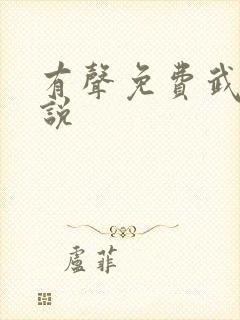 有聲免費武
說
盧菲